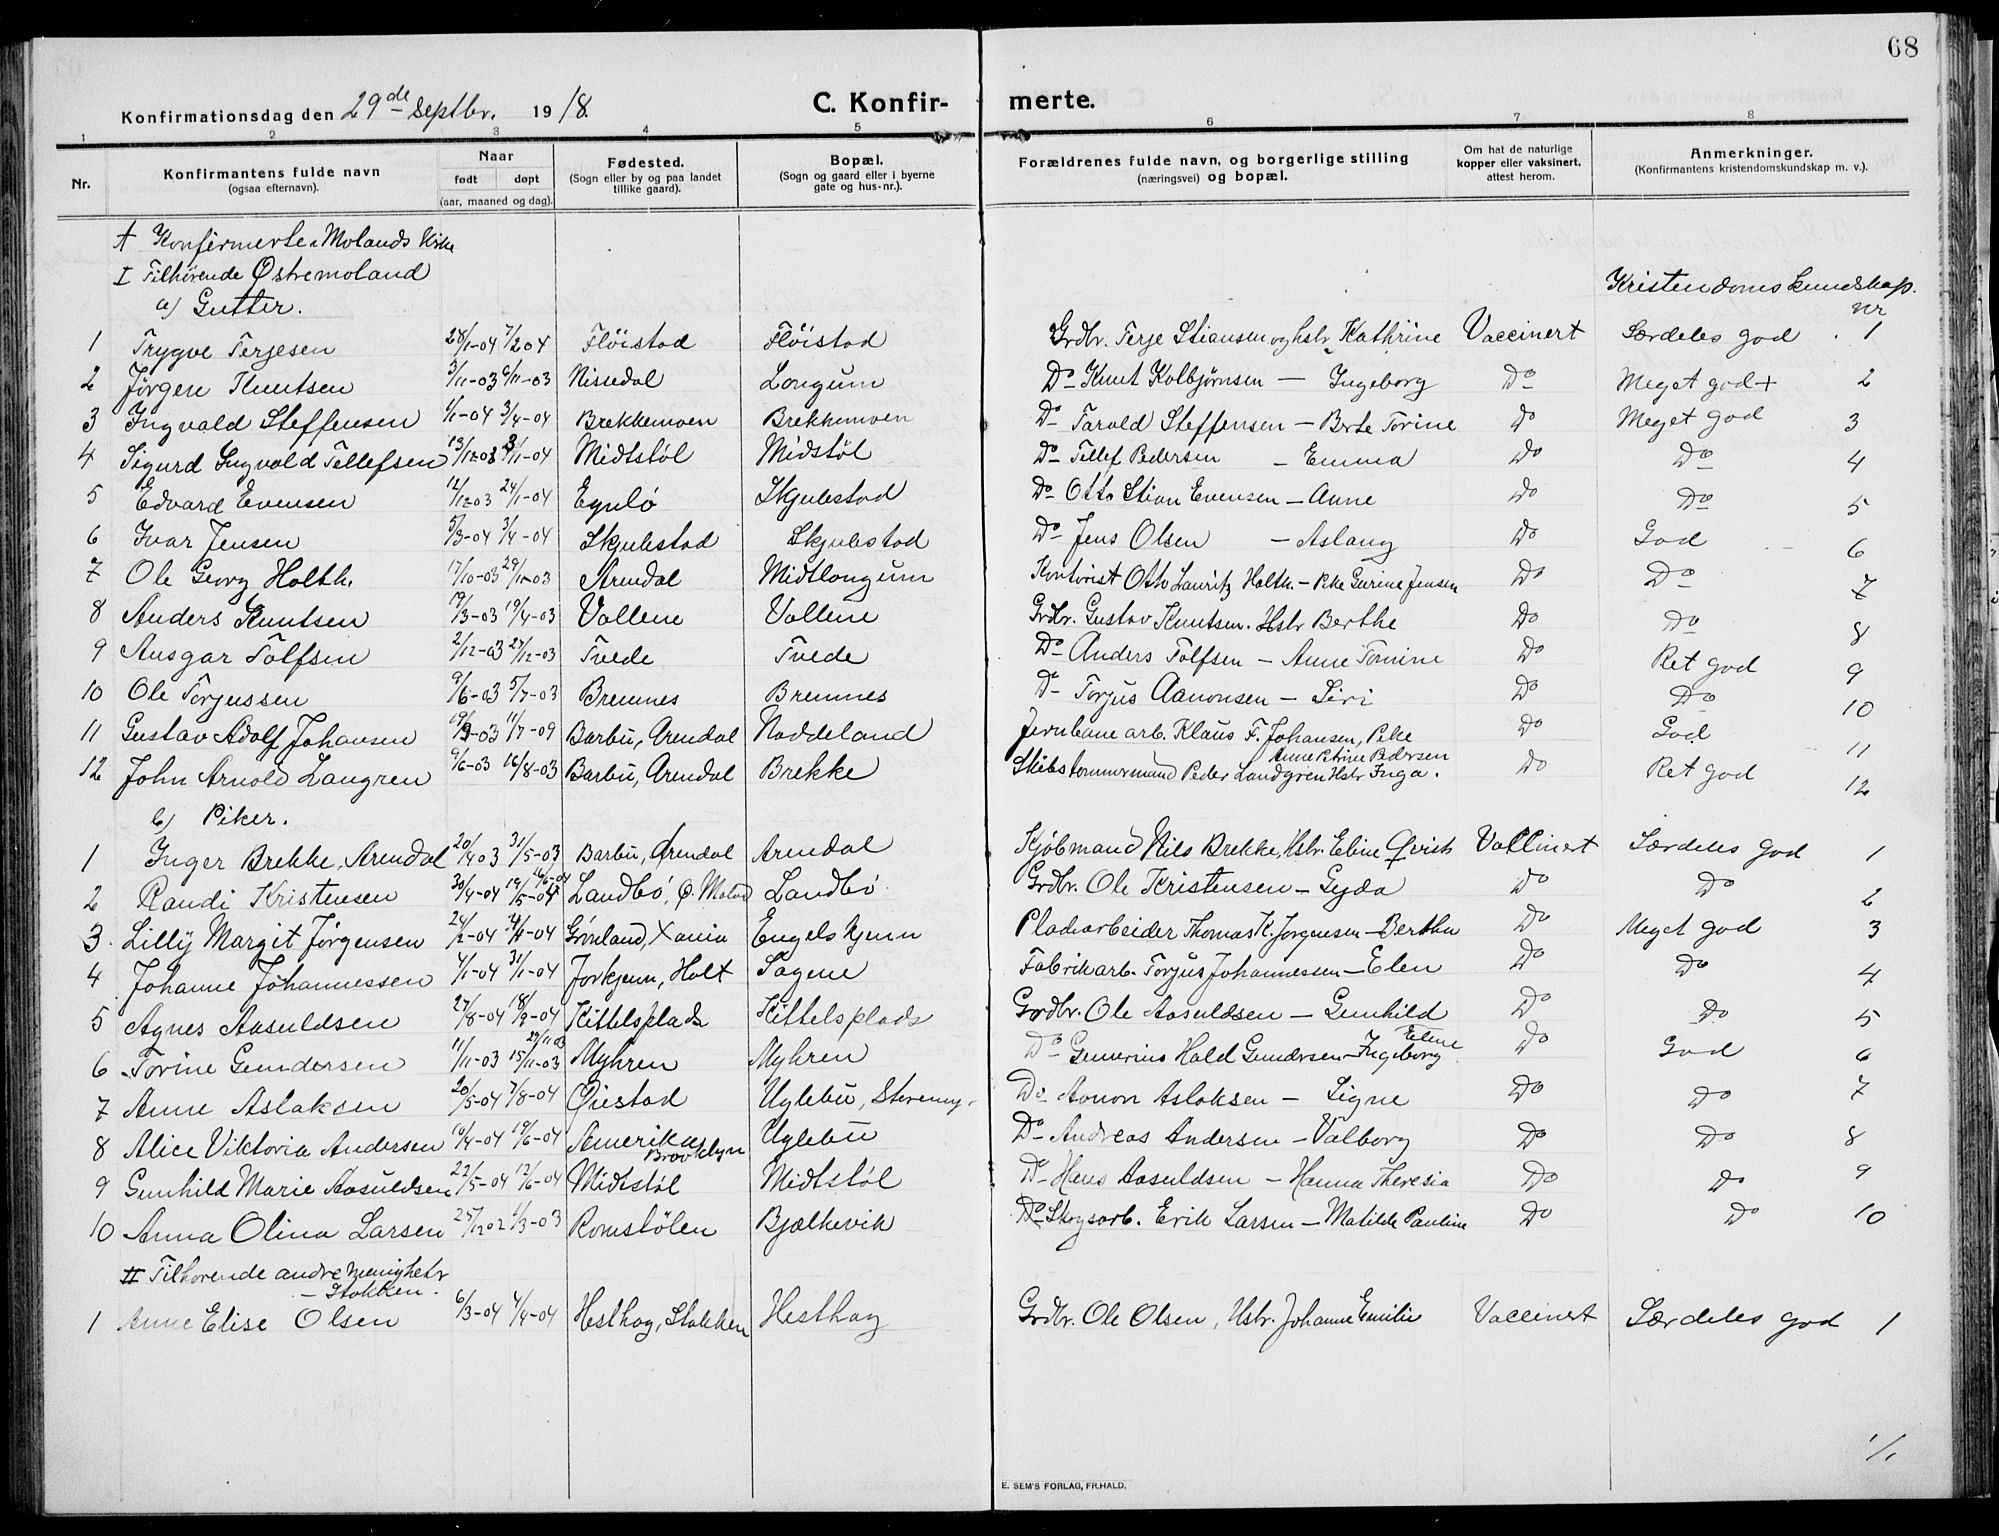 68
Konfirmationsdag den 29de Septbr. 1918. C. Konfirmerte.
1 2 3 4 5 6 7 8
Nr. Konfirmantens fulde navn (ogsaa efternavn). Naar født døpt (aar, maaned og dag). Fødested. (Sogn eller by og paa landet tillike gaard). Bopæl. (Sogn og gaard eller i byerne gate og hus-nr.). Forældrenes fulde navn, og borgerlige stilling (næringsvei) og bopæl. Om hat de naturlige kopper eller vaksinert, attest herom. Anmerkninger. (Konfirmantens kristendomskundskap m. v.).
A Konfirmerte i Molands Kirke
I Tilhørende Østremoland
a) Gutter. Kristendomskundskap. nr
1 Trygve Terjesen 28/1-04 7/2 04 Fløistad Fløistad Grdbr. Terje Stiansen og hstr. Kathrine Vaccinert Særdeles god 1
2 Jørgen Knutsen 3/11-03 6/11-03 Nissedal Longum Do Knut Kolbjørnsen — Ingeborg Do Meget god + 2
3 Ingvald Steffensen 1/1-04 3/4-04 Brekkemoen Brekkemoen Do Tarald Steffensen — Berte Torine Do Meget god 3
4 Sigurd Ingvald Tellefsen 13/12-03 3/1-04 Midtstøl Midstøl Do Tellef Pedersen — Emma Do Do 4
5 Edvard Evensen 12/12-03 24/1-04 Egnlø Skjulestad Do Otto Stian Evensen — Anne Do Do 5
6 Ivar Jensen 5/3-04 3/4-04 Skjulestad Skjulestad Do Jens Olsen — Aslaug Do God 6
7 Ole Georg Holth. 17/10-03 29/11-03 Arendal Midtlongum Kontorist Otto Lauritz Holth. — Pike Gurine Jensen Do Do 7
8 Anders Knutsen 19/3-03 19/4-03 Vollene Vollene Grdbr. Gustav Knutsen. Hstr Berthe Do Do 8
9 Ansgar Tolfsen 2/12-03 27/12-03 Tvede Tvede Do Anders Tolfsen — Anne Tomine Do Ret god 9
10 Ole Torjussen 9/6-03 5/7-03 Bremnes Bremnes Do Torjus Aanonsen — Siri Do Do 10
11 Gustav Adolf Johansen 11/7-09 Barbu, Arendal Noddeland Jernbanearb. Klaus F. Johansen, Pike Anne Petrine Pedersen Do God 11
12 John Arnold Langren 9/6-03 16/8-03 Barbu, Arendal Brekke Skibstømmermand Peder Landgren Hstr Inga. Do Ret god 12
b) Piker.
1 Inger Brekke, Arendal 20/4 03 31/5-03 Barbu, Arendal Arendal Kjøbmand Nils Brekke, Hstr. Eline Qvist Vaccinert Særdeles god 1
2 Randi Kristensen 30/4-04 Landbø, Ø. Moland Landbø Grdbr. Ole Kristensen — Gyda Do Do 2
3. Lilly Margit Jørgensen 24/2-04 Grønland, Xania Engelskjønn Pladsarbeider Thomas K. Jørgensen — Bertha Do Meget god 3
4 Johanne Johannessen 4/1-04 31/1-04 Jorkjenn, Holt Sagene Fabrikarb. Torjus Johannessen — Elen Do Do 4
5 Agnes Aasuldsen 27/8-04 18/9-04 Kittelsplads Kittelsplads Grdbr. Ole Aasuldsen — Gunhild Do Do 5
6 Torine Gundersen 11/11-03 15/11-03 29/11 03 Myhren Myhren Do Gunerius Hald Gundersen — Ingeborg Eline Do God 6
7 Anne Aslaksen 20/5-04 7/8-04 Øiestad Uglebu, Do Aanon Aslaksen — Signe Do Do 7
8 Alice Viktoria Andersen 10/4-04 19/6-04 Amerika Brooklyn Uglebu Do Andreas Andersen — Valborg Do Do 8
9 Gunhild Marie Aasuldsen 22/5-04 12/6-04 Midtstøl Midtstøl Do Hans Aasuldsen — Hanna Theresia Do Do 9
10 Anna Olina Larsen 25/12 02 1/3-03 Romstølen Bjælkevik Do Skogsarb. Erik Larsen — Matilde Pauline Do Do 10
II Tilhørende andre menigheter
— Stokken.
1 Anne Elise Olsen 6/3-04 4/4-04 Hesthag, Stokken Hesthag Grdbr. Ole Olsen, Hstr. Johanne Emilie Vaccinert Særdeles god 1
1/1
E. SEM'S FORLAG, FR.HALD.